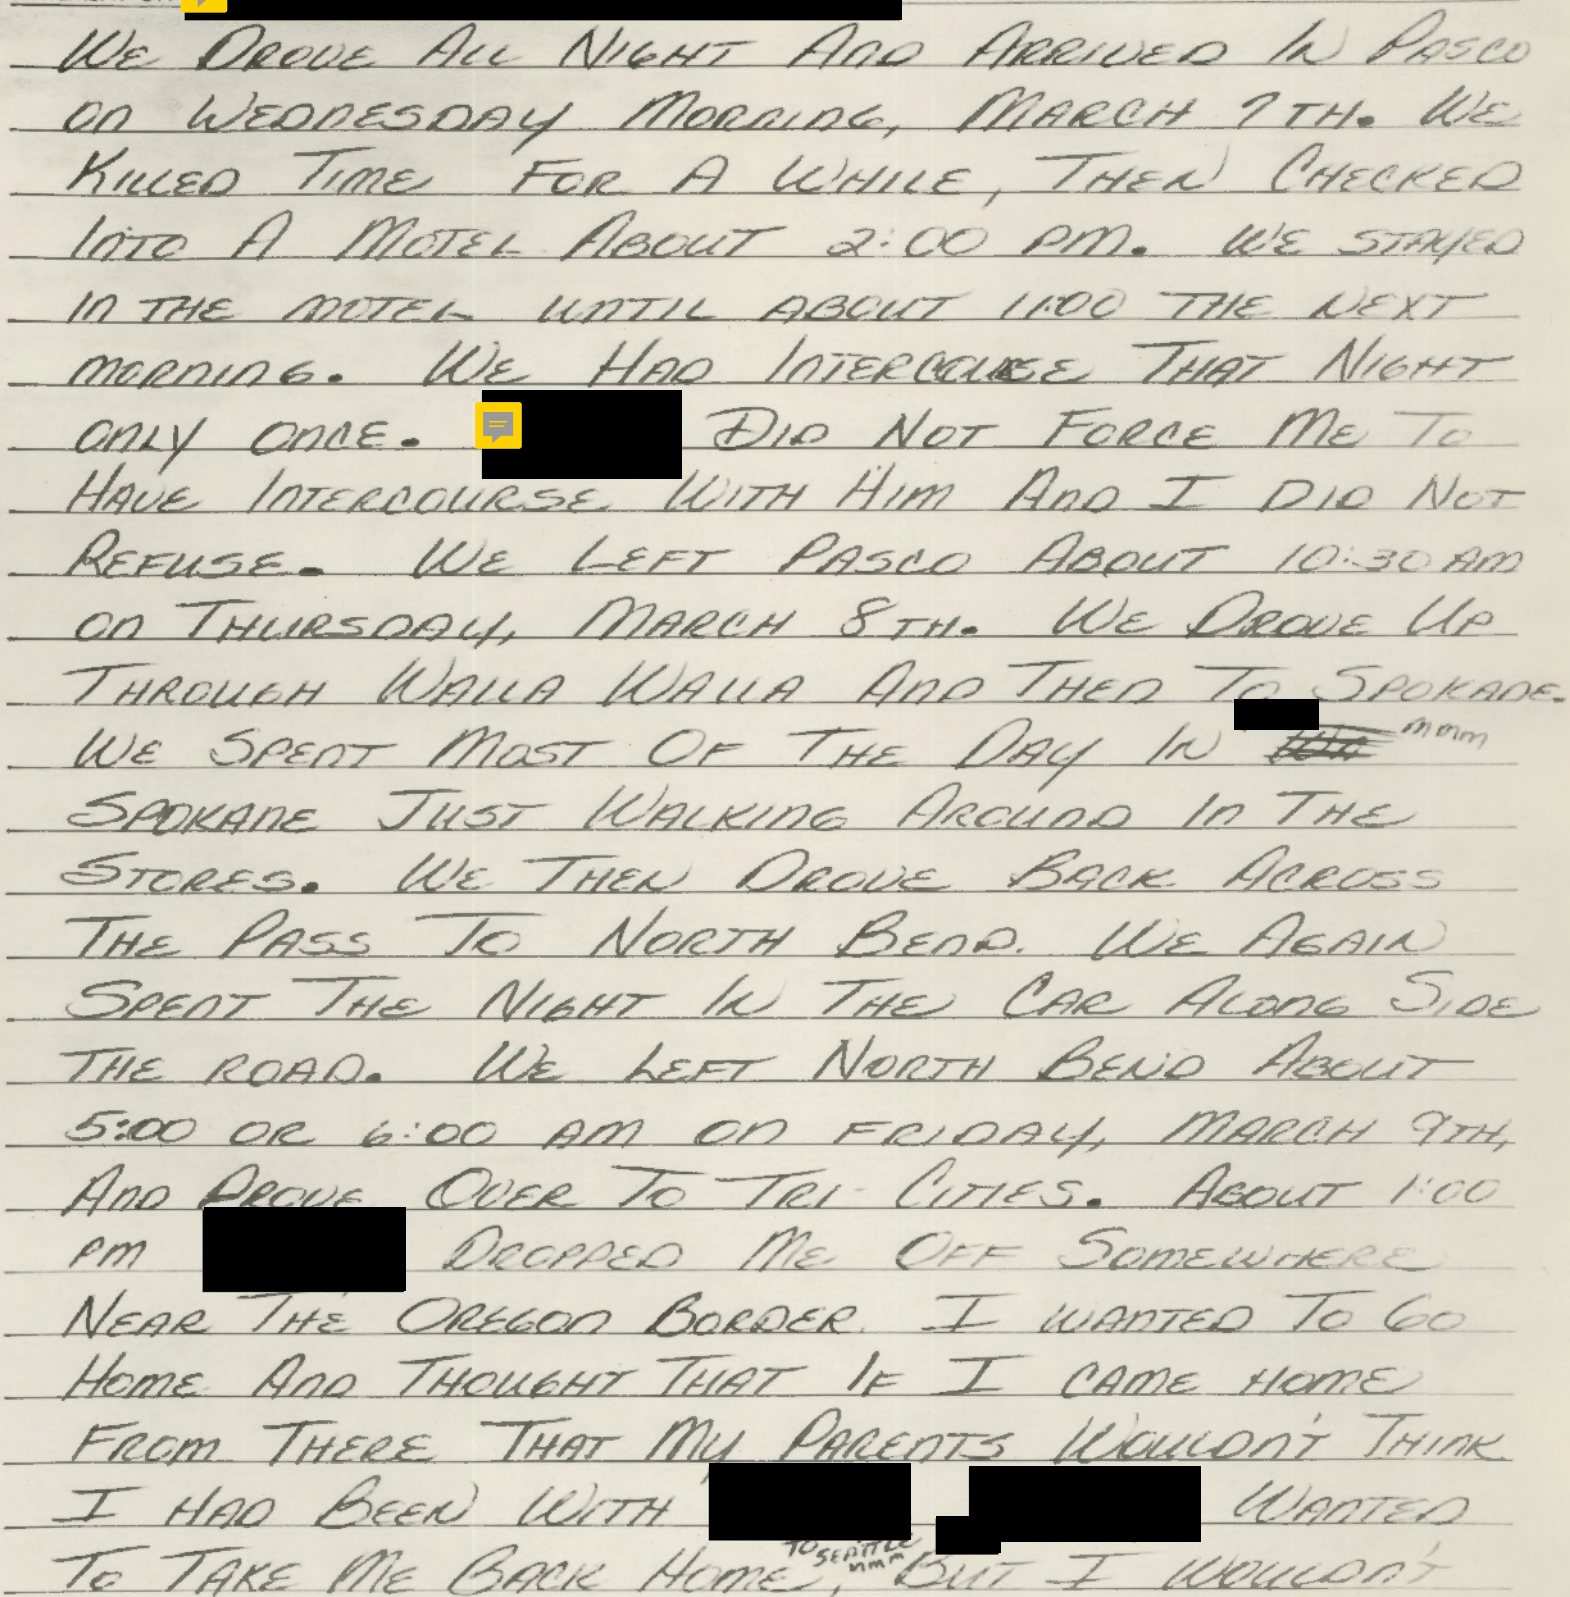 We Drove All Night And Arrived In Pasco
on Wednesday Morning, March 7th. We
Killed Time For A While, Then Checked
Into A Motel About 2:00 PM. We stayed
in the motel until about 11:00 the next
morning. We Had Intercourse That Night
only once. Did Not Force Me To
Have Intercourse With Him And I Did Not
Refuse. We Left Pasco About 10:30 AM
on Thursday, March 8th. We Drove Up
Through Walla Walla And Then To Spokane.
We Spent Most Of The Day In mmm
Spokane Just Walking Around In The
Stores. We Then Drove Back Across
The Pass To North Bend. We Again
Spent The Night In The Car Along Side
the road. We Left North Bend About
5:00 or 6:00 AM on Friday, March 9th,
And Drove Over To Tri-Cities. About 1:00
PM Dropped Me Off Somewhere
Near The Oregon Border. I wanted To Go
Home And Thought That If I came home
From There That My Parents Wouldn't Think
I Had Been With Wanted
to Seattle
mmm
To Take Me Back Home, But I Wouldn't